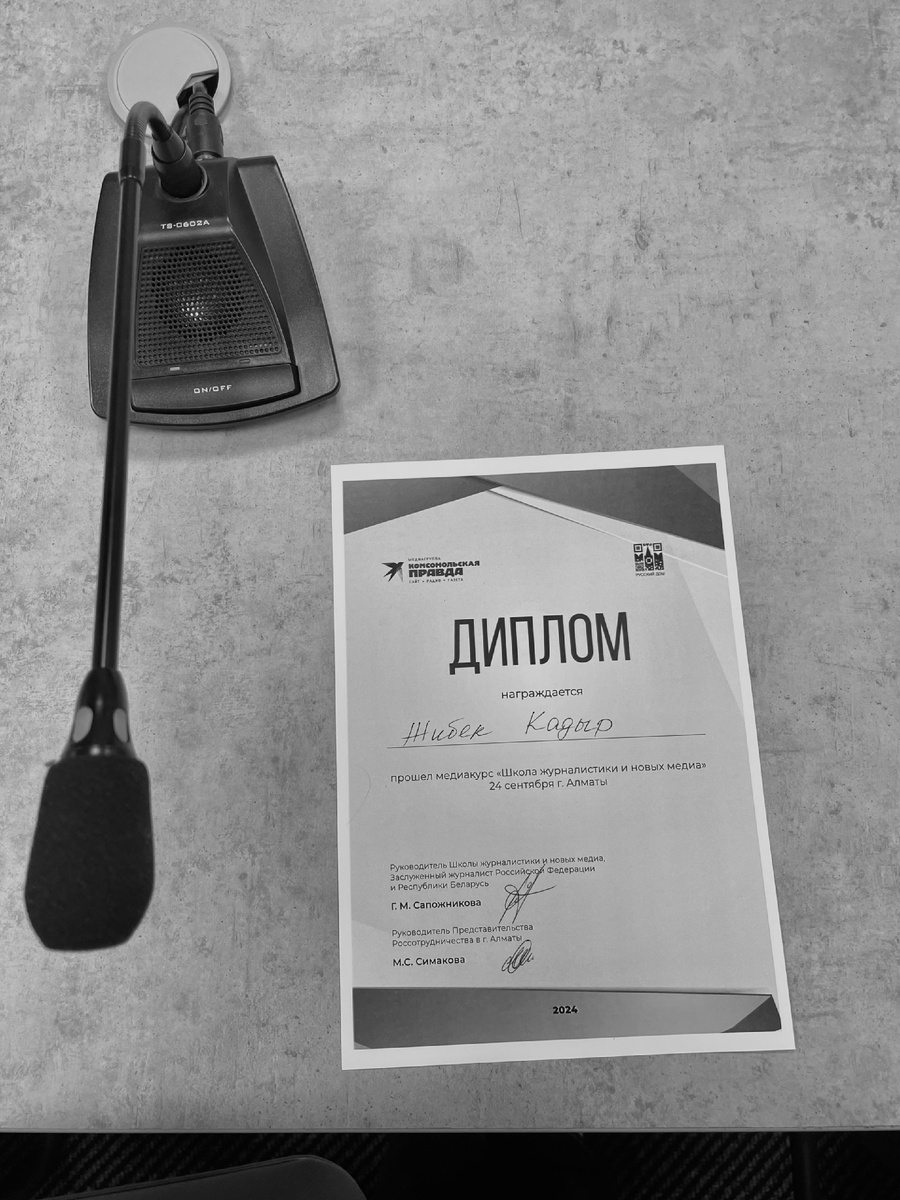 TS-0602A
ON/OFF
МЕДИАГРУППА
КОМСОМОЛЬСКАЯ
ПРАВДА
САЙТ • РАДИО • ГАЗЕТА
РУССКИЙ ДОМ
ДИПЛОМ
награждается
Жибек Кадыр
прошел медиакурс «Школа журналистики и новых медиа»
24 сентября г. Алматы
Руководитель Школы журналистики и новых медиа,
Заслуженный журналист Российской Федерации
и Республики Беларусь
Г. М. Сапожникова
Руководитель Представительства
Россотрудничества в г. Алматы
М.С. Симакова
2024